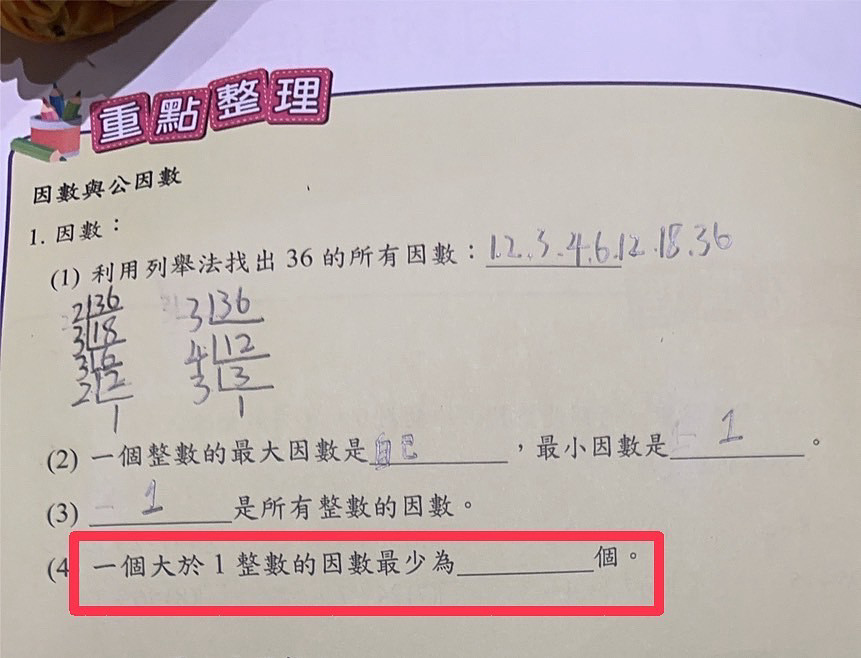 重點整理
因數與公因數
1. 因數：
(1) 利用列舉法找出 36 的所有因數：1.2.3.4.6.12.18.36
2 36 3 36
3 18 4 12
3 6 3 3
2 2 1
1
(2) 一個整數的最大因數是自己，最小因數是 1。
(3) 1 是所有整數的因數。
(4 一個大於 1 整數的因數最少為____個。